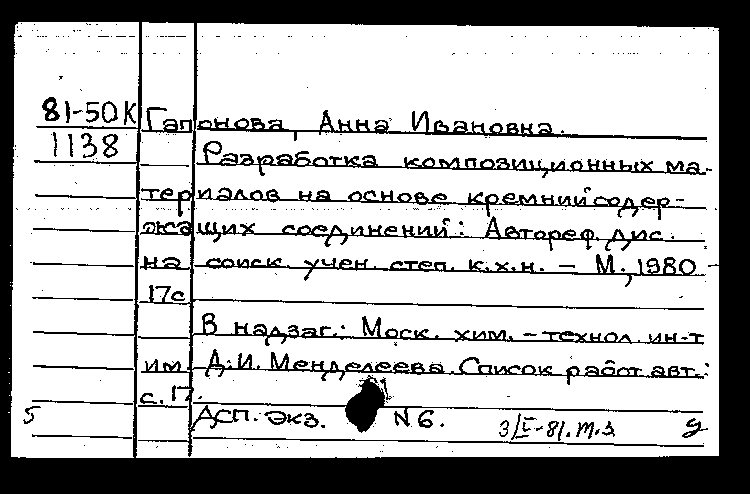 81-50К Гапонова, Анна Ивановна.
1138 Разработка композиционных ма-
териалов на основе кремнийсодер-
жащих соединений: Автореф. дис.
на соиск. учен. степ. к.х.н. – М., 1980 -
17с
В надзаг.: Моск. хим.-технол. ин-т
им. Д.И. Менделеева. Список работ авт.:
с. 17.
5 Асп. экз. N 6.